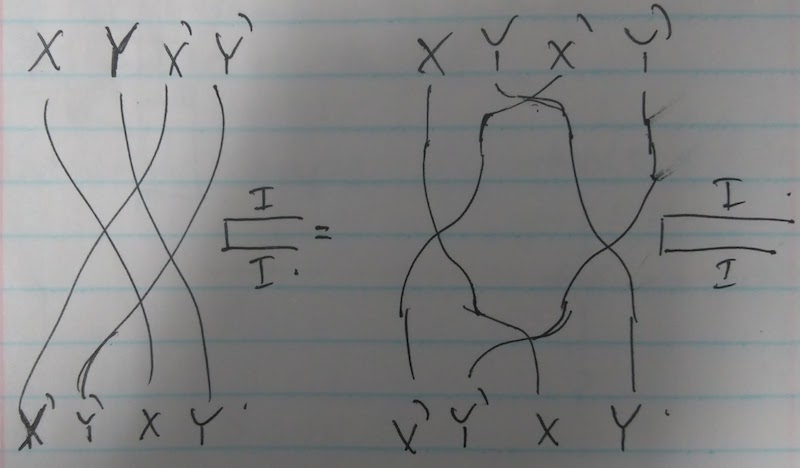 X Y X' Y' X Y X' Y'
I I
=
I I
X' Y' X Y X' Y' X Y